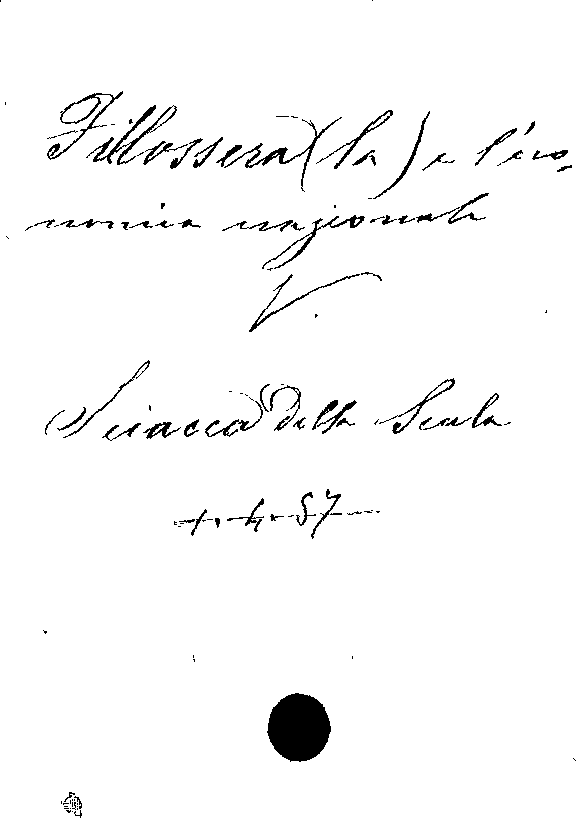 Fillossera (la) e l'eco-
nomia nazionale
V.
Sciacca della Scala
1. 4. 57